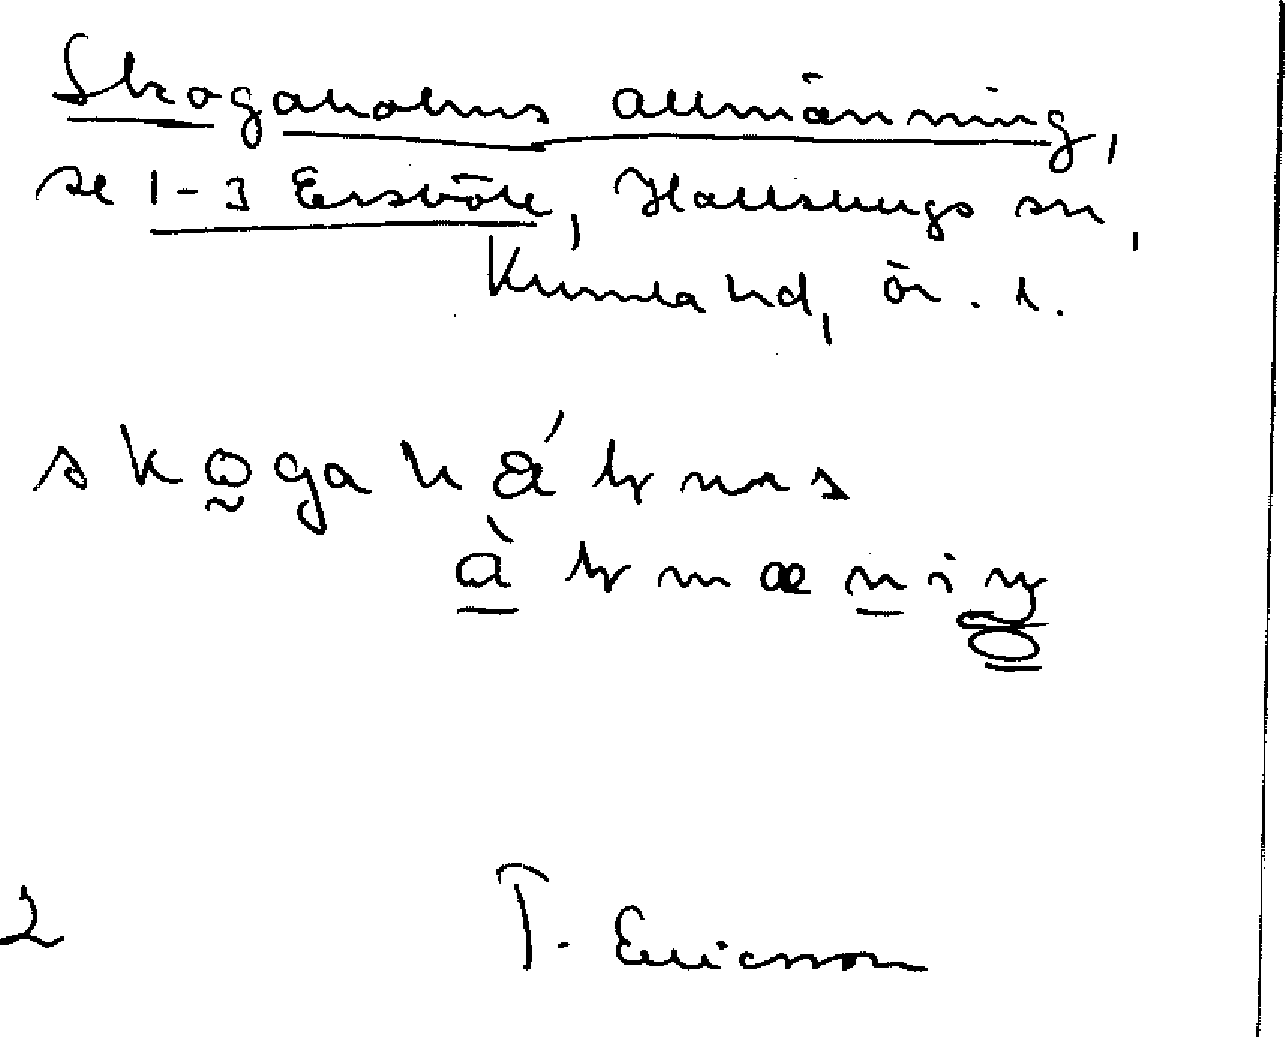 Skogaholms allmänning,
se 1-3 Ersböle, Hallsbergs sn,
Kumla hd, ör. l.
skogahǻlmas
à lmæniŋ
2 T. Ericsson